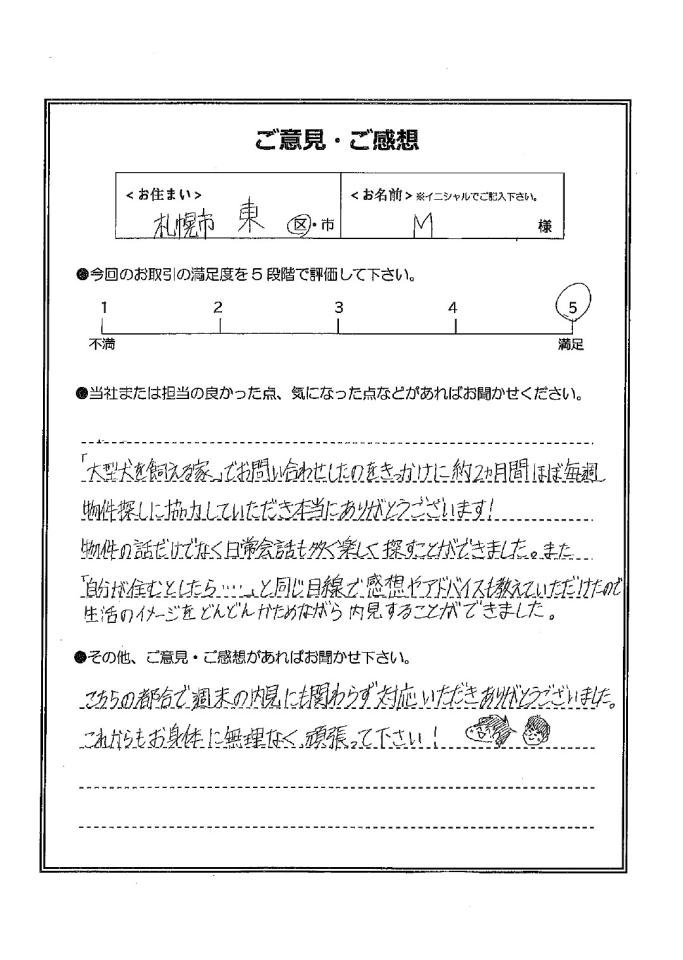 ご意見・ご感想
<お住まい>
札幌市 東 区・市
<お名前>※イニシャルでご記入下さい。
M 様
●今回のお取引の満足度を5段階で評価して下さい。
1 2 3 4 5
不満 満足
●当社または担当の良かった点、気になった点などがあればお聞かせください。
「大型犬を飼える家」でお問い合わせしたのをきっかけに約2ヵ月間ほぼ毎週
物件探しに協力していただき本当にありがとうございます!
物件の話だけでなく日常会話も多く楽しく探すことができました。また
「自分が住むとしたら……」と同じ目線で感想やアドバイスも教えていただけたので
生活のイメージをどんどんかためながら内見することができました。
●その他、ご意見・ご感想があればお聞かせ下さい。
こちらの都合で週末の内見にも関わらず対応いただきありがとうございました。
これからもお身体に無理なく頑張って下さい!